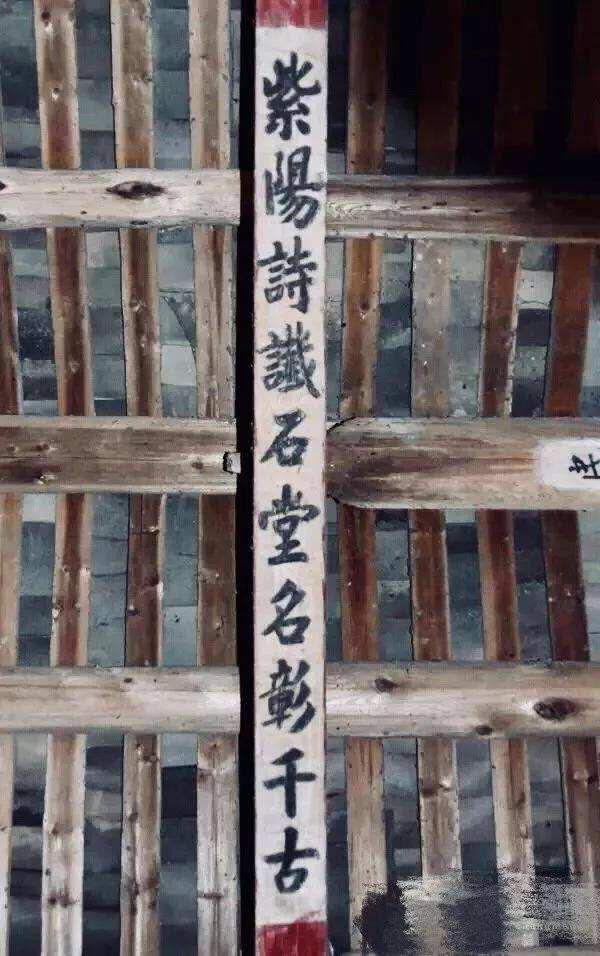 紫陽詩讖石堂名彰千古